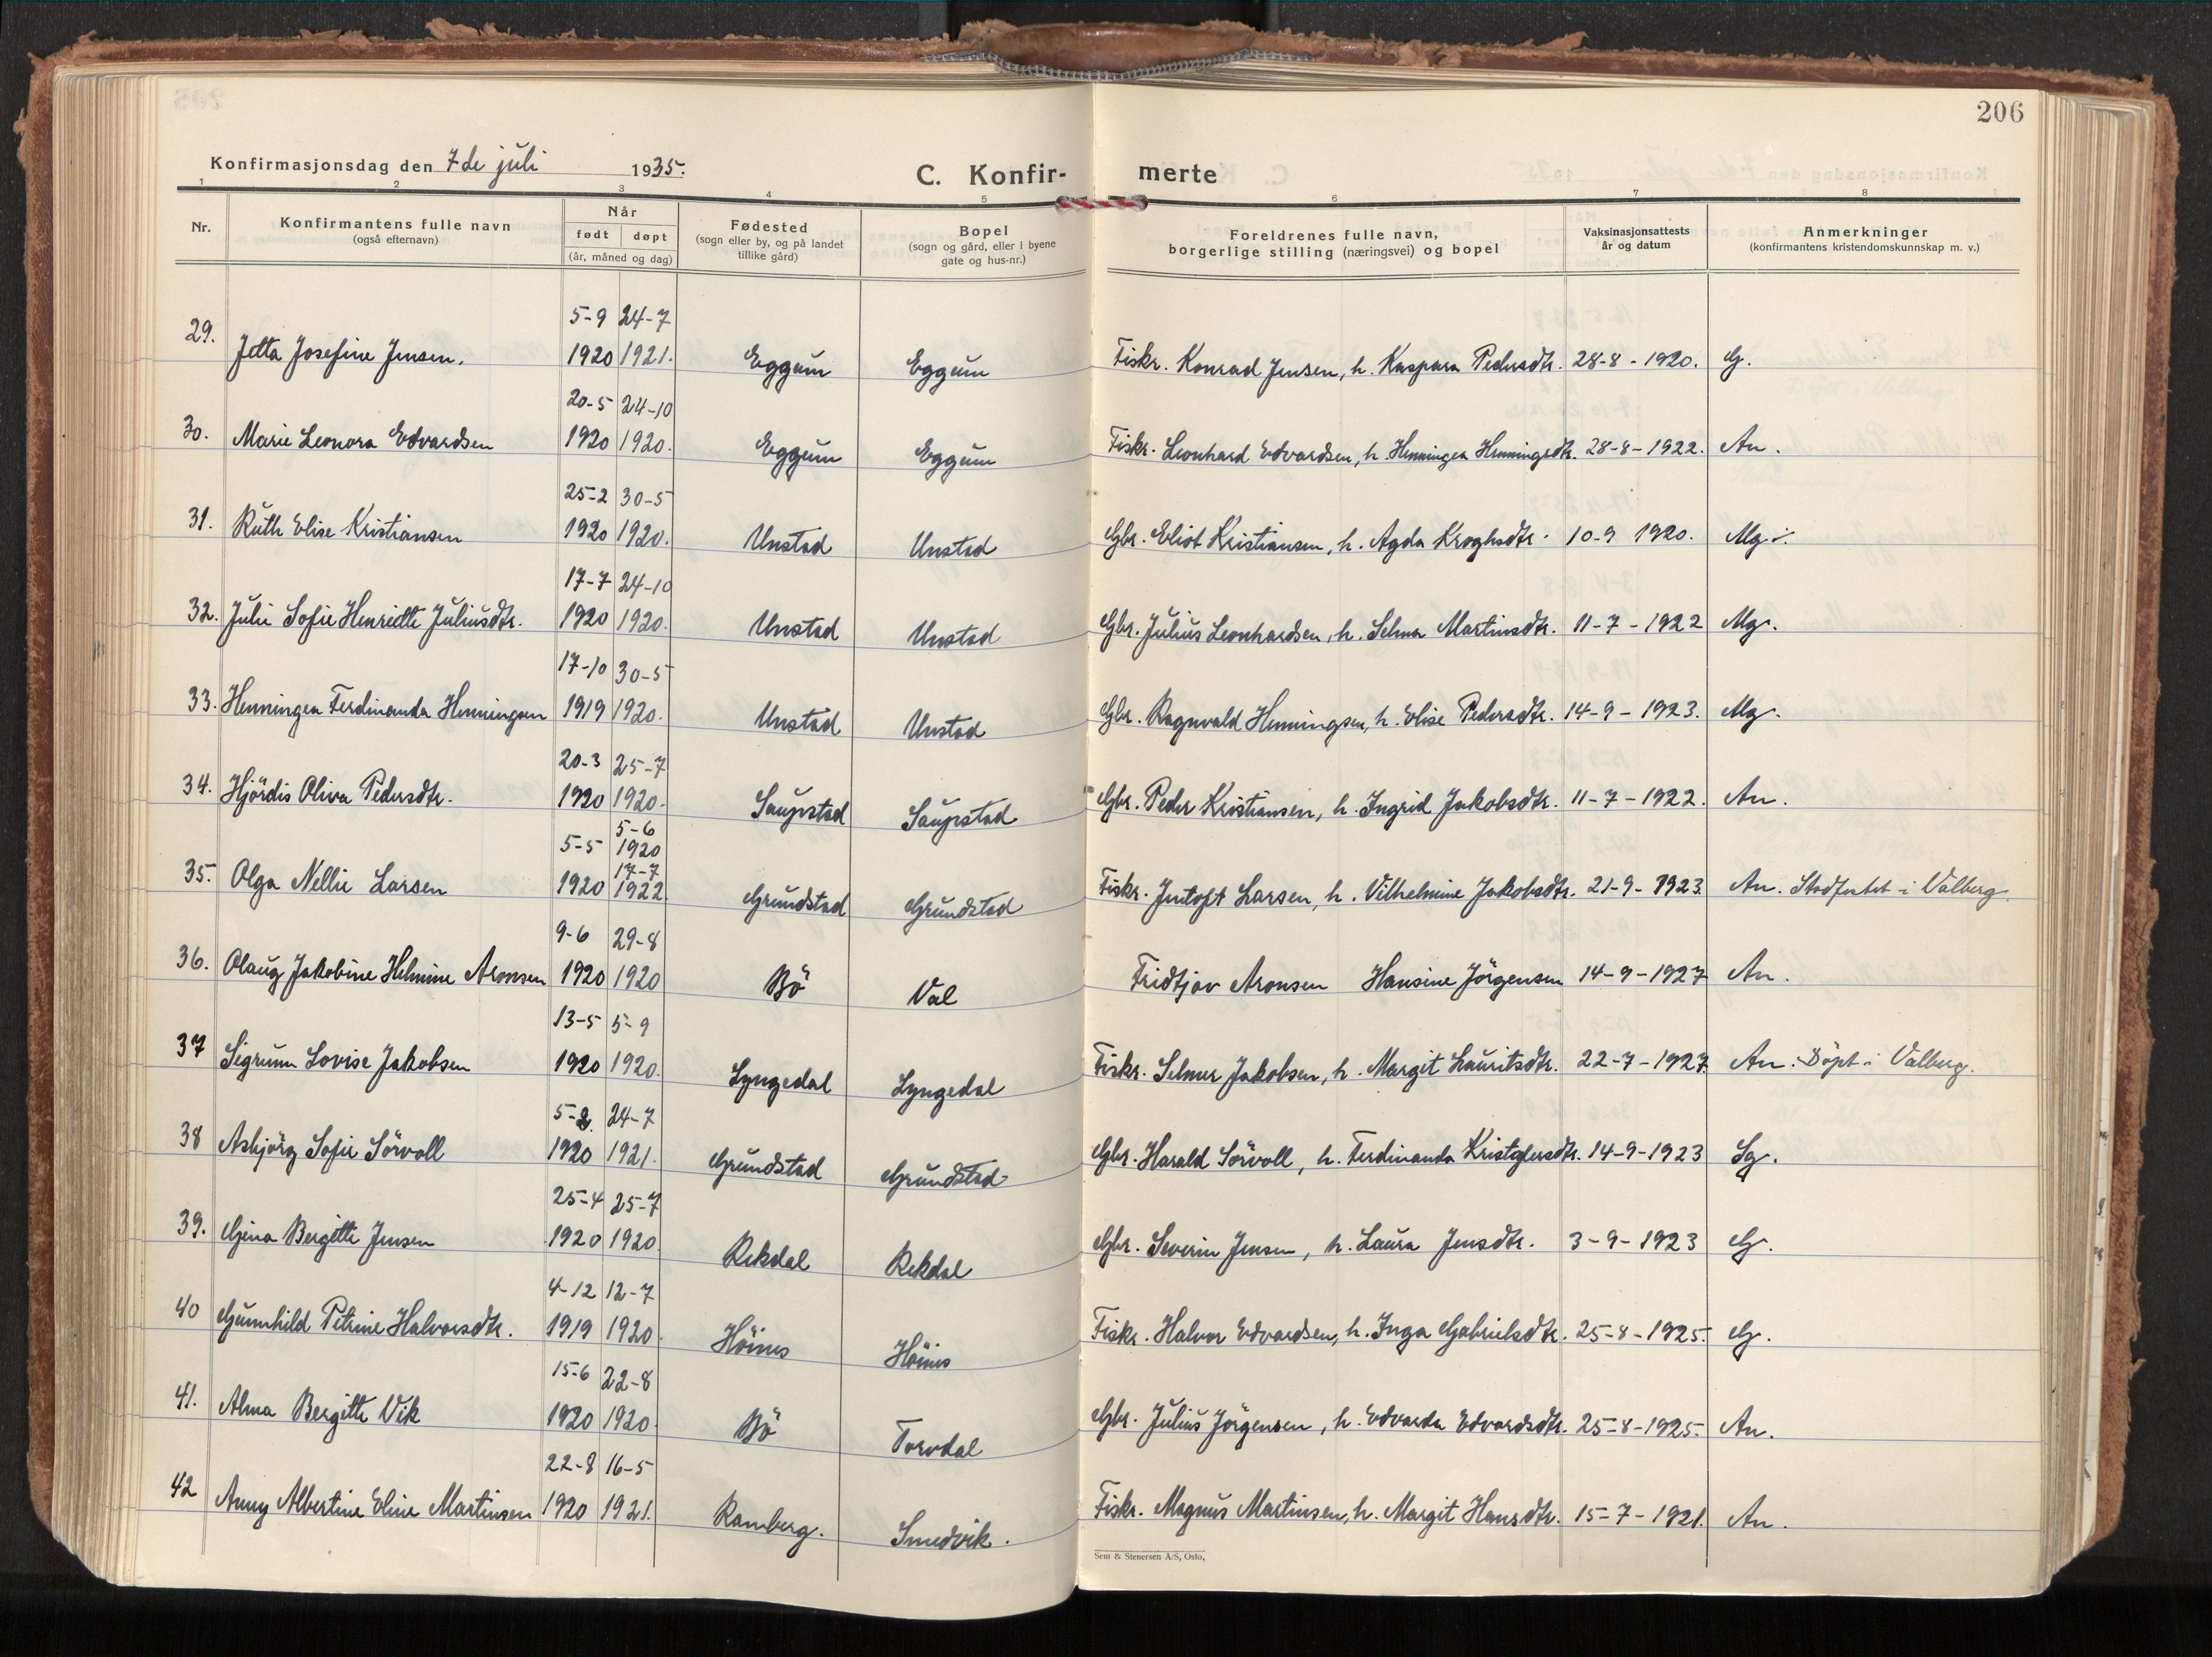 206
Konfirmasjonsdag den 7de juli 1935.
C. Konfir- merte
1 2 3 4 5 6 7 8
Nr.
Konfirmantens fulle navn
(også efternavn)
Når
født døpt
(år, måned og dag)
Fødested
(sogn eller by, og på landet
tillike gård)
Bopel
(sogn og gård, eller i byene
gate og hus-nr.)
Foreldrenes fulle navn,
borgerlige stilling (næringsvei) og bopel
Vaksinasjonsattests
år og datum
Anmerkninger
(konfirmantens kristendomskunnskap m. v.)
5-9 24-7
29. Jetta Josefine Jensen. 1920 1921. Eggum Eggum Fiskr. Konrad Jensen, h. Kaspara Pedersdtr. 28-8-1920. G.
20-5 24-10
30. Marie Leonora Edvardsen 1920 1920. Eggum Eggum Fiskr. Leonhard Edvardsen, h. Henningea Henningsdtr. 28-8-1922. An.
25-2 30-5
31. Ruth Elise Kristiansen 1920 1920. Unstad Unstad Gbr. Eliot Kristiansen, h. Agda Kroghsdtr. 10-9 1920. Mg.
17-7 24-10
32. Julie Sofie Henriette Juliusdtr. 1920 1920. Unstad Unstad Gbr. Julius Leonhardsen, h. Selma Martinsdtr. 11-7-1922 Mg.
17-10 30-5
33. Henningea Ferdinanda Henningsen 1919 1920. Unstad Unstad Gbr. Ragnvald Henningsen, h. Elise Pedersdtr. 14-9-1923. Mg.
20-3 25-7
34. Hjördis Oliva Pedersdtr. 1920 1920. Saupstad Saupstad Gbr. Peder Kristiansen, h. Ingrid Jakobsdtr. 11-7-1922. An.
5-6
5-5 1920
17-7
35. Olga Nellie Larsen 1920 1922 Grundstad Grundstad Fiskr. Jentoft Larsen, h. Vilhelmine Jakobsdtr. 21-9-1923. An. Stadfestet i Valberg.
9-6 29-8
36. Olaug Jakobine Helmine Aronsen 1920 1920 Bö Val Fridtjov Aronsen Hansine Jörgensen 14-9-1927 An.
13-5 5-9
37 Sigrunn Lovise Jakobsen 1920 1920. Lyngedal Lyngedal Fiskr. Selmer Jakobsen, h. Margit Lauritsdtr. 22-7-1927. An. Döpt i Valberg.
5-2. 24-7
38 Asbjörg Sofie Sörvoll 1920 1921. Grundstad Grundstad Gbr. Harald Sörvoll, h. Ferdinanda Kristofersdtr. 14-9-1923 Sg.
25-4 25-7
39. Gjena Bergitte Jensen 1920 1920 Rekdal Rekdal Gbr. Severin Jensen, h. Laura Jensdtr. 3-9-1923 G.
4-12 12-7
40 Gunnhild Petrine Halvorsdtr. 1919 1920. Höines Höines Fiskr. Halvor Edvardsen, h. Inga Gabrielsdtr. 25-8-1925. G.
15-6 22-8
41. Alma Bergitte Vik 1920 1920. Bö Torvdal Gbr. Julius Jörgensen, h. Edvarda Edvardsdtr. 25-8-1925. An.
22-8 16-5
42 Anny Albertine Eline Martinsen 1920 1921. Ramberg. Smedvik. Fiskr. Magnus Martinsen, h. Margit Hansdtr. 15-7-1921. An.
Sem & Stenersen A/S, Oslo,